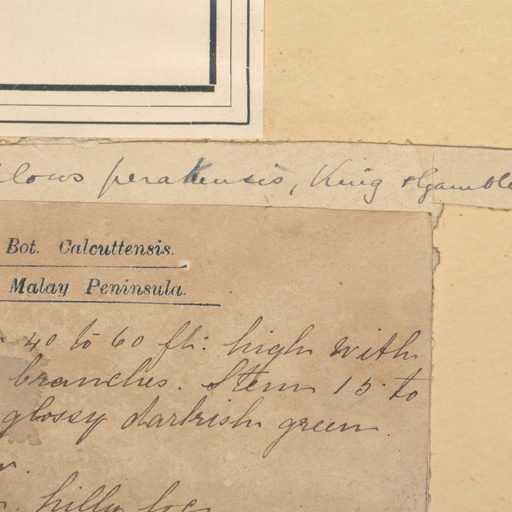 perakensis, King & Gamble
Bot. Calcuttensis.
Malay Peninsula.
40 to 60 ft: high with
branches. Stem 15 to
glossy darkish green.
hilly